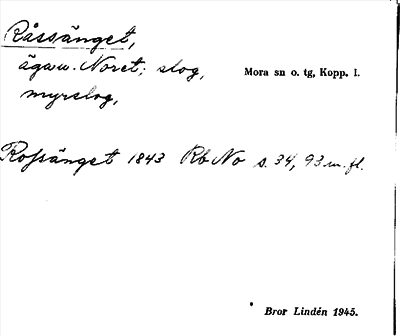 Råssänget,
äga u. Noret; slog,
Mora sn o. tg, Kopp. l.
myrslog,
Rossänget 1843 Rb No s. 34, 93 m. fl.
Bror Lindén 1945.